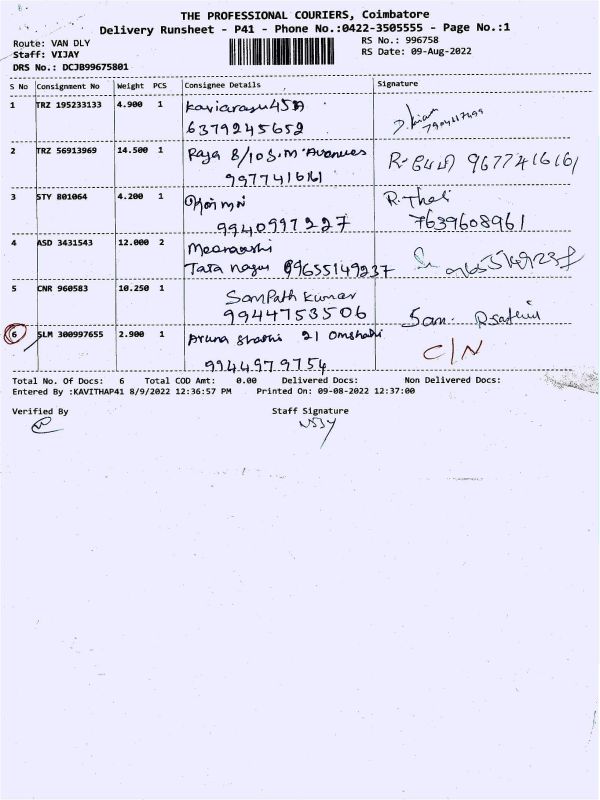 THE PROFESSIONAL COURIERS, Coimbatore
Delivery Runsheet - P41 - Phone No.:0422-3505555 - Page No.:1
Route: VAN DLY
Staff: VIJAY
DRS No.: DCJB99675801
RS No.: 996758
RS Date: 09-Aug-2022
S No Consignment No Weight PCS Consignee Details Signature
1 TRZ 195233133 4.900 1
6379245652
2 TRZ 56913969 14.500 1 Raja 8/10 S.M. Avenues R- 9677416161
9977416161
3 STY 801064 4.200 1 R. Thal
9940997227 7639608961
4 ASD 3431543 12.000 2 Meenakshi
Tata nagar 9655149237 9655149237
5 CNR 960583 10.250 1 SamPath Kumar
9944753506 Sam.
6 SLM 300997655 2.900 1 Aruna 21 C/N
9944979754
Total No. Of Docs: 6 Total COD Amt: 0.00 Delivered Docs: Non Delivered Docs:
Entered By :KAVITHAP41 8/9/2022 12:36:57 PM Printed On: 09-08-2022 12:37:00
Verified By Staff Signature